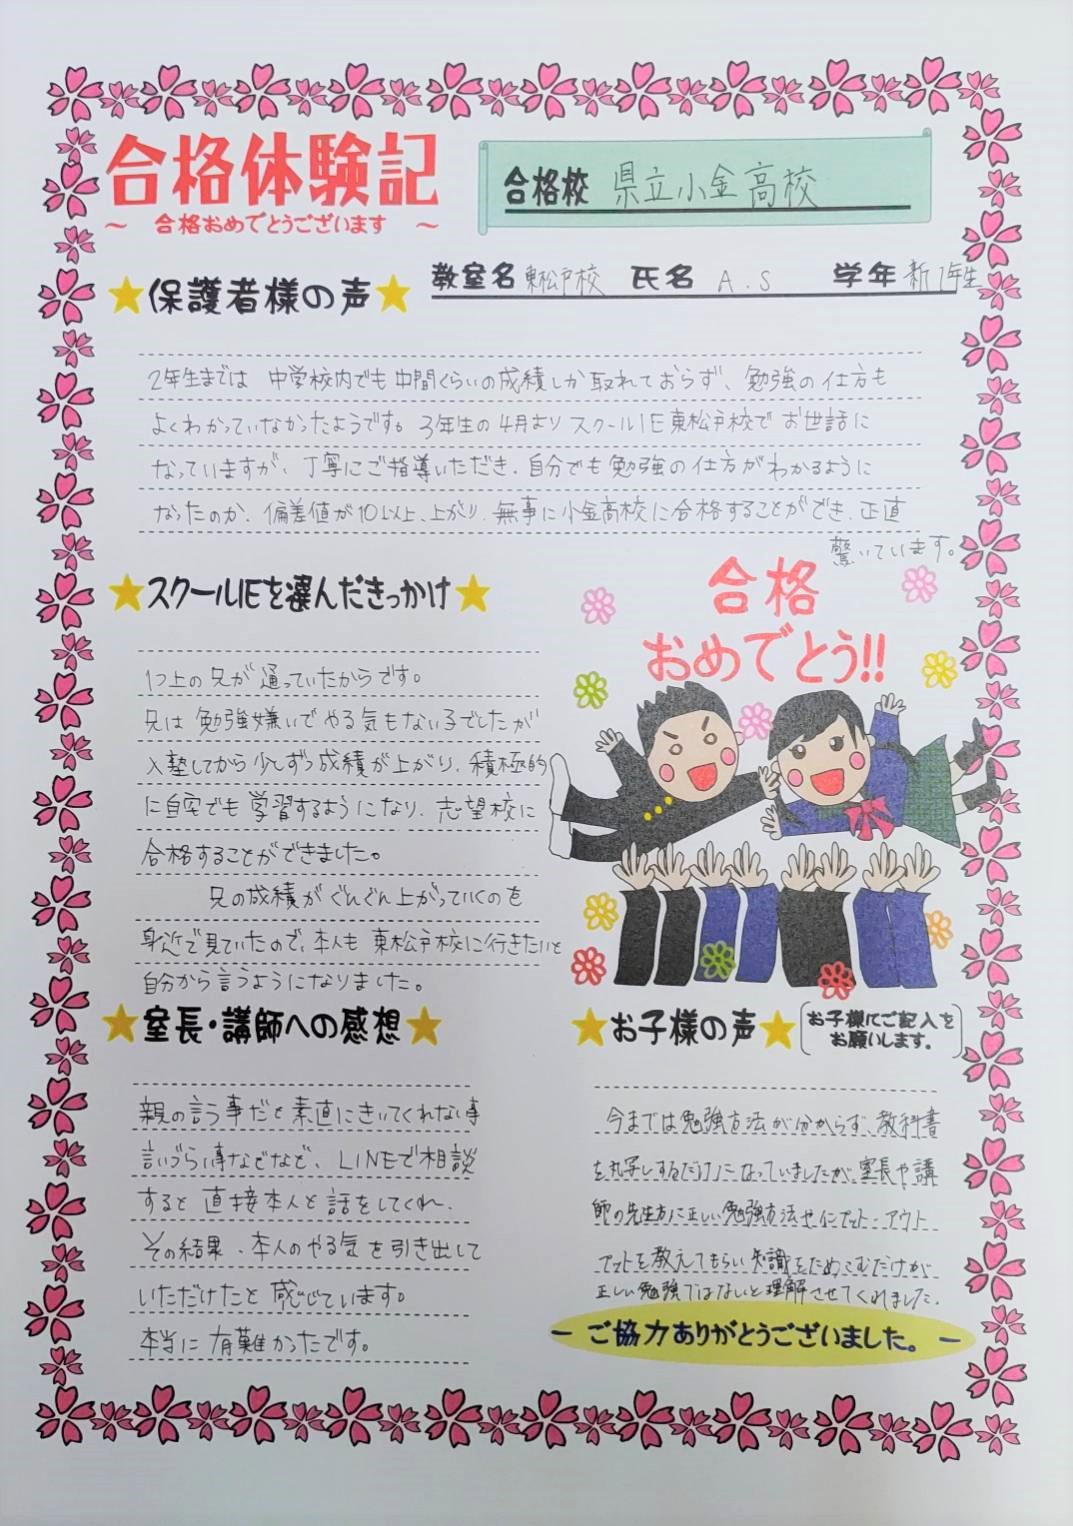 合格体験記
～ 合格おめでとうございます ～
合格校 県立小金高校
教室名 東松戸校 氏名 A.S 学年 新1年生
★保護者様の声★
2年生までは 中学校内でも中間くらいの成績しか取れておらず、勉強の仕方も
よくわかっていなかったようです。3年生の4月より スクールIE東松戸校で お世話に
なっていますが、丁寧にご指導いただき、自分でも勉強の仕方がわかるように
なったのか、偏差値が10以上、上がり、無事に小金高校に合格することができ、正直
驚いています。
★スクールIEを選んだきっかけ★
1つ上の兄が通っていたからです。
兄は勉強嫌いでやる気もない子でしたが
入塾してから少しずつ成績が上がり、積極的
に自宅でも学習するようになり、志望校に
合格することができました。
兄の成績がぐんぐん上がっていくのを
身近で見ていたので、本人も 東松戸校に行きたいと
自分から言うようになりました。
合格
おめでとう!!
★室長・講師への感想★
親の言う事だと素直にきいてくれない事
言いづらい事などなど、LINEで相談
すると 直接本人と話をしてくれ、
その結果、本人のやる気を引き出して
いただけたと感じています。
本当に有難かったです。
★お子様の声★ (お子様にてご記入を
お願いします。)
今までは勉強方法が分からず、教科書
を丸写しするだけになっていましたが、室長や講
師の先生方に正しい勉強方法やインプット・アウト
プットを教えてもらい知識をためこむだけが
正しい勉強ではないと理解させてくれました。
－ご協力ありがとうございました。－